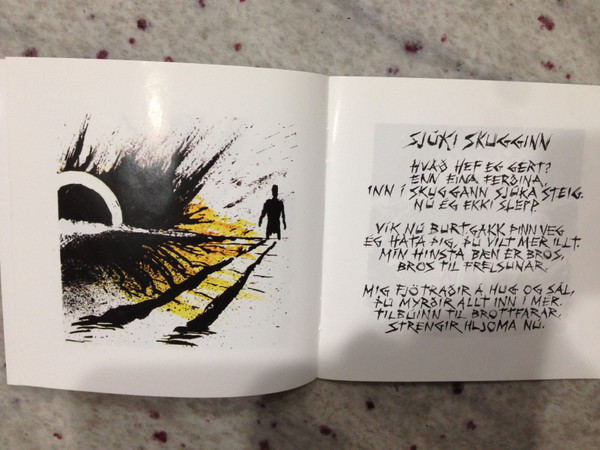 SJÚKI SKUGGINN
HVAÐ HEF EG GERT?
ENN EINA FERÐINA,
INN Í SKUGGANN SJÚKA STEIG.
NÚ EG EKKI SLEPP.
VÍK NÚ BURT, GAKK ÞINN VEG
EG HATA ÞIG, ÞÚ VILT MER ILLT.
MÍN HINSTA BÆN ER BROS,
BROS TIL FRELSUNAR.
MIG FJÖTRAÐIR Á HUG OG SÁL,
ÞÚ MYRÐIR ALLT INN Í MER.
TILBÚINN TIL BROTTFARAR,
STRENGIR HLJÓMA NÚ.